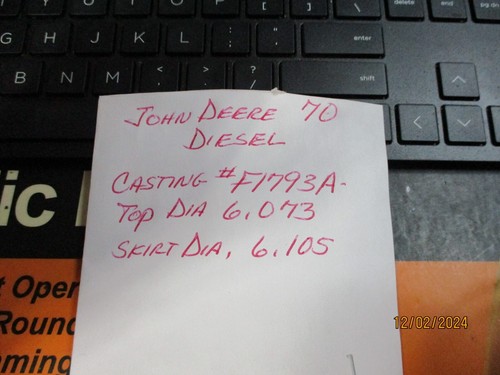 { } | \ delete end pg dn
G H J K L : ; " ' enter
B N M < , > . ? / shift
JOHN DEERE 70
DIESEL
CASTING # F1793A-
TOP DIA 6.073
SKIRT DIA, 6.105
ic
t Oper
Round
ming
12/02/2024